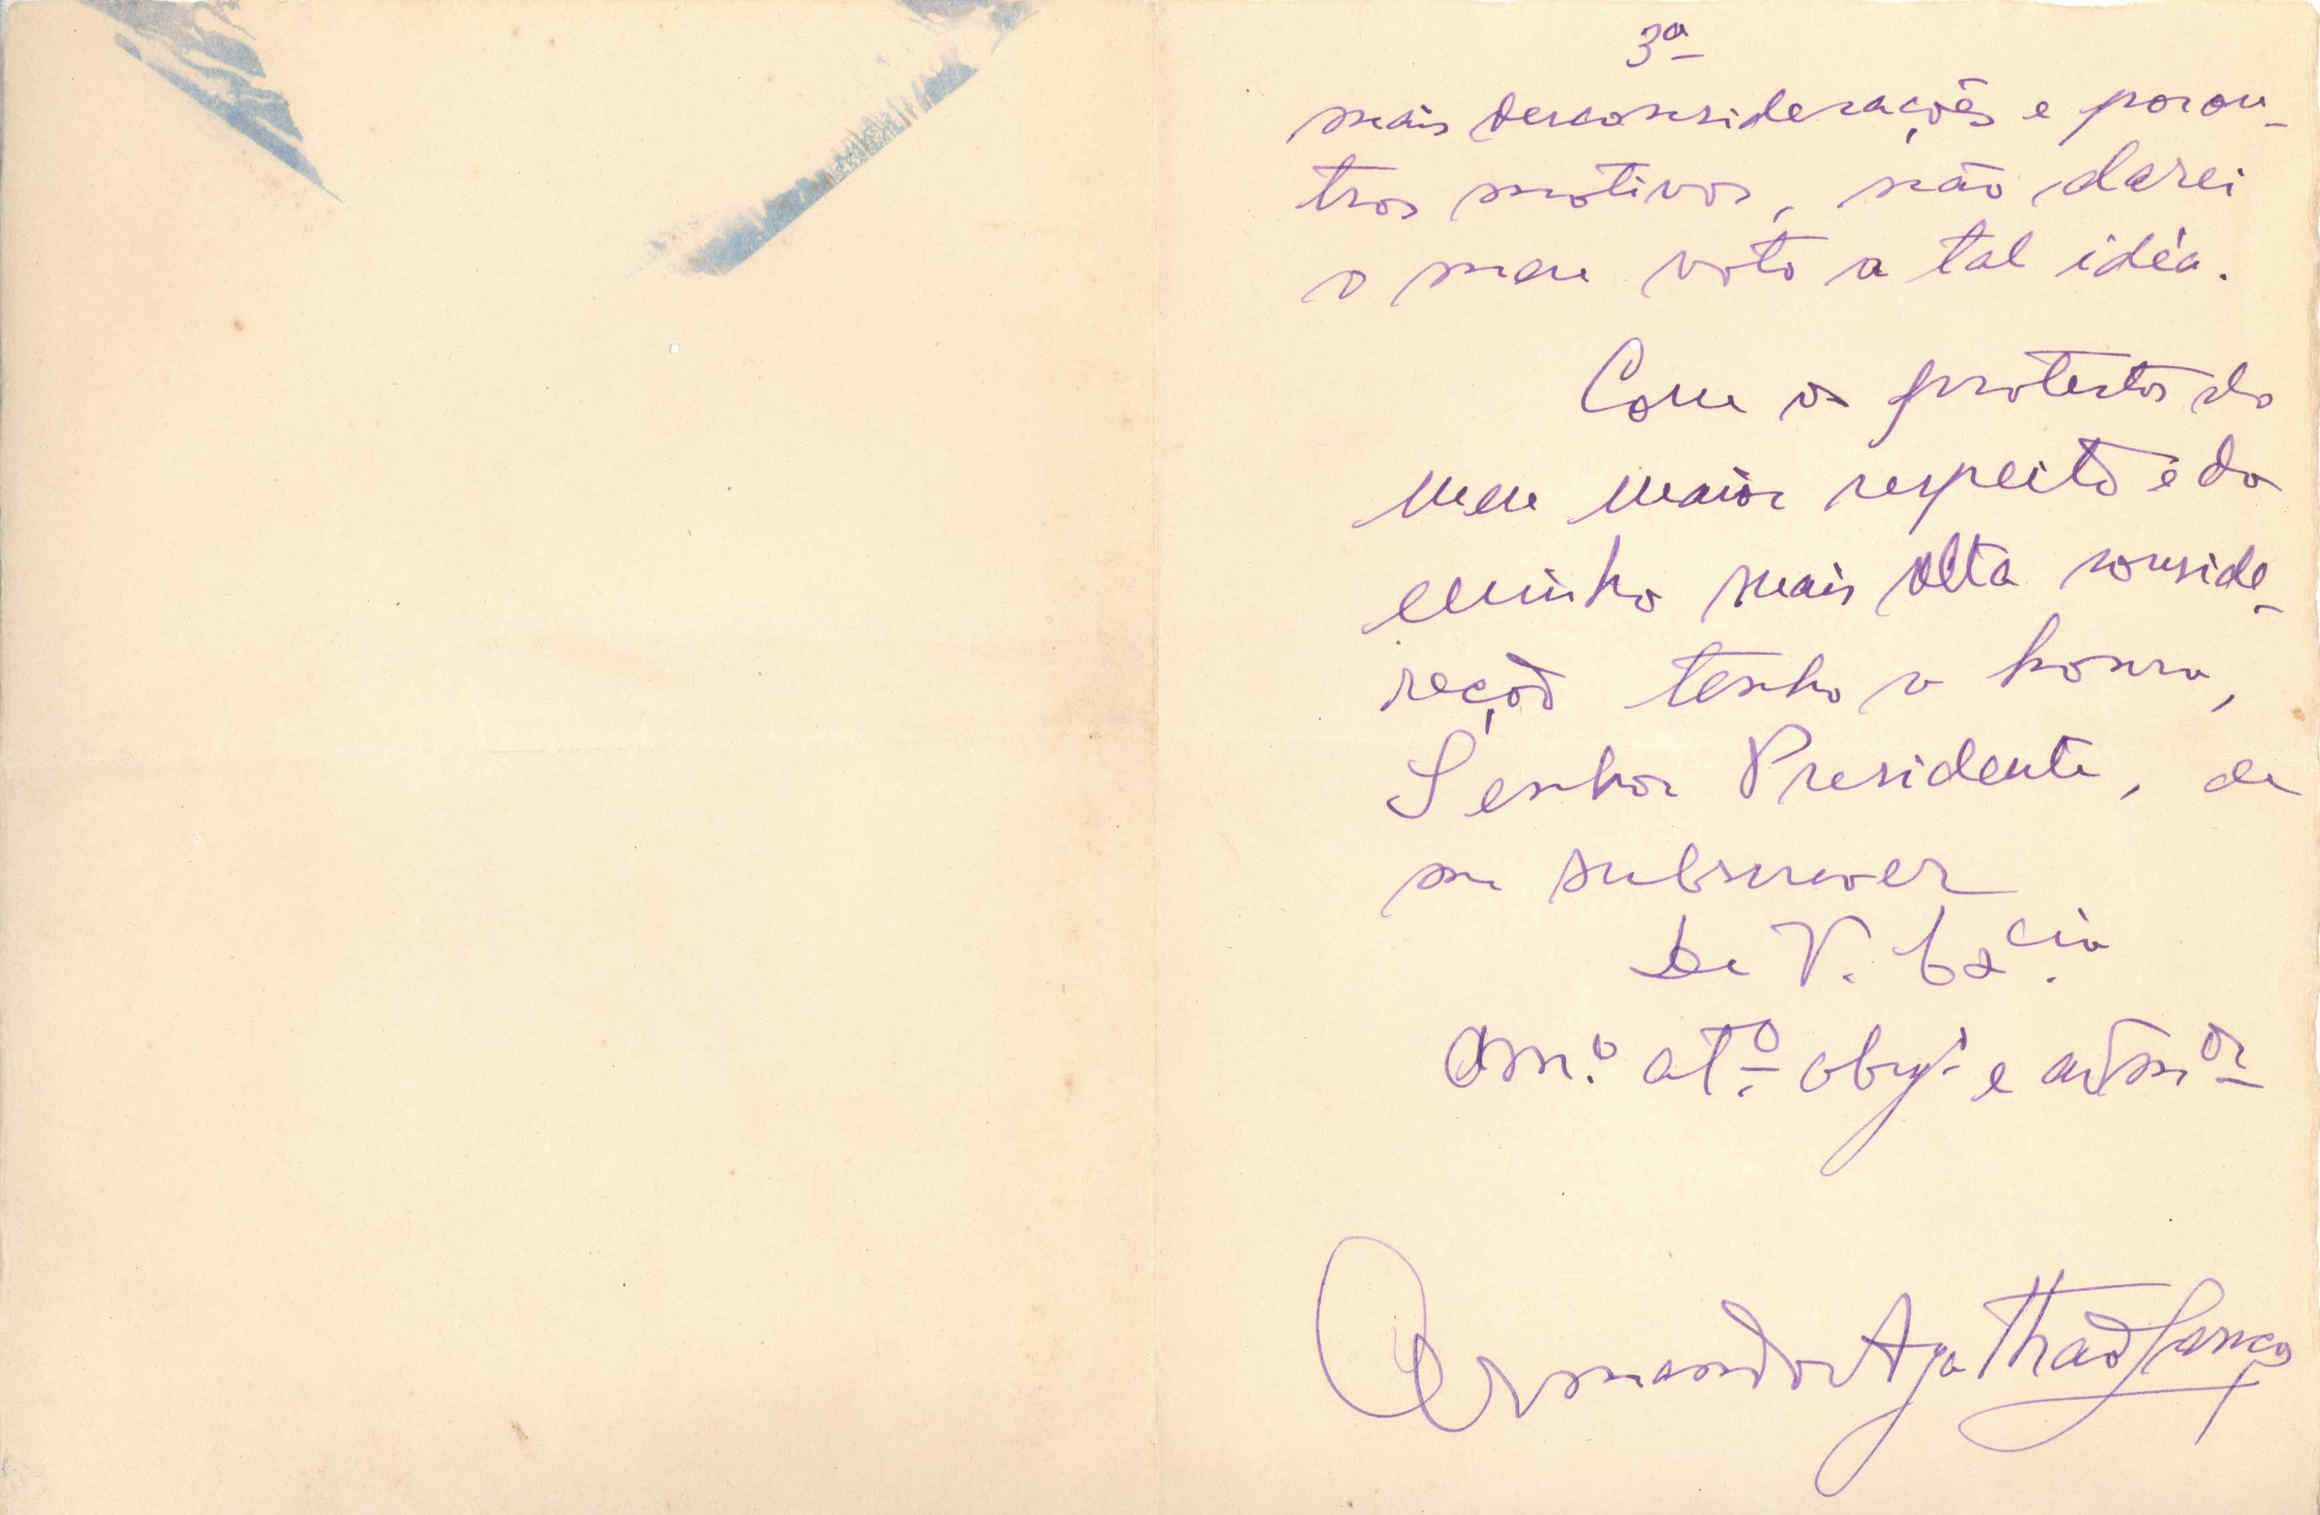 3ª
mais desconsiderações e por ou-
tros motivos, não darei
o meu voto a tal idéa.
Com os protestos do
meu maior respeito e da
minha mais alta conside-
ração tenho a honra,
Senhor Presidente, de
me subscrever
De V. Excia.
Amº. atº. obgº. e admor
Armando Agathão Lança